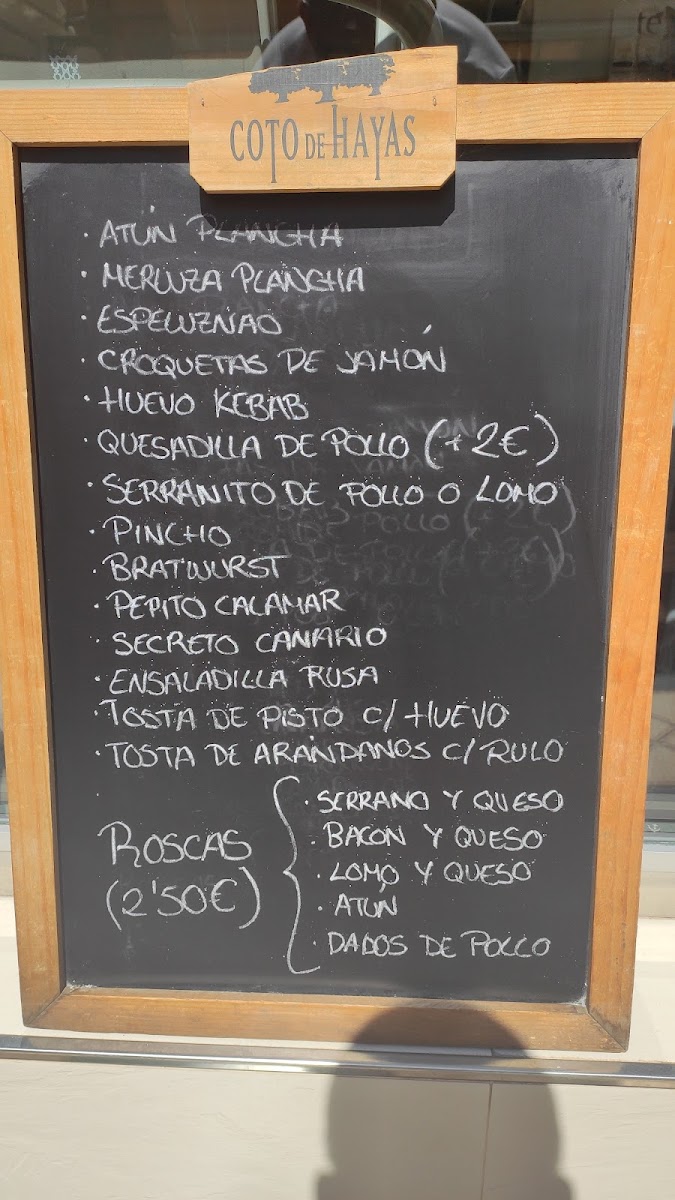 COTO DE HAYAS
· ATÚN PLANCHA
· MERLUZA PLANCHA
· ESPELUZNAO
· CROQUETAS DE JAMÓN
· HUEVO KEBAB
· QUESADILLA DE POLLO (+2€)
· SERRANITO DE POLLO O LOMO
· PINCHO
· BRATWURST
· PEPITO CALAMAR
· SECRETO CANARIO
· ENSALADILLA RUSA
· TOSTA DE PISTO C/ HUEVO
· TOSTA DE ARÁNDANOS C/ RULO
ROSCAS
(2'50€)
· SERRANO Y QUESO
· BACON Y QUESO
· LOMO Y QUESO
· ATÚN
· DADOS DE POLLO